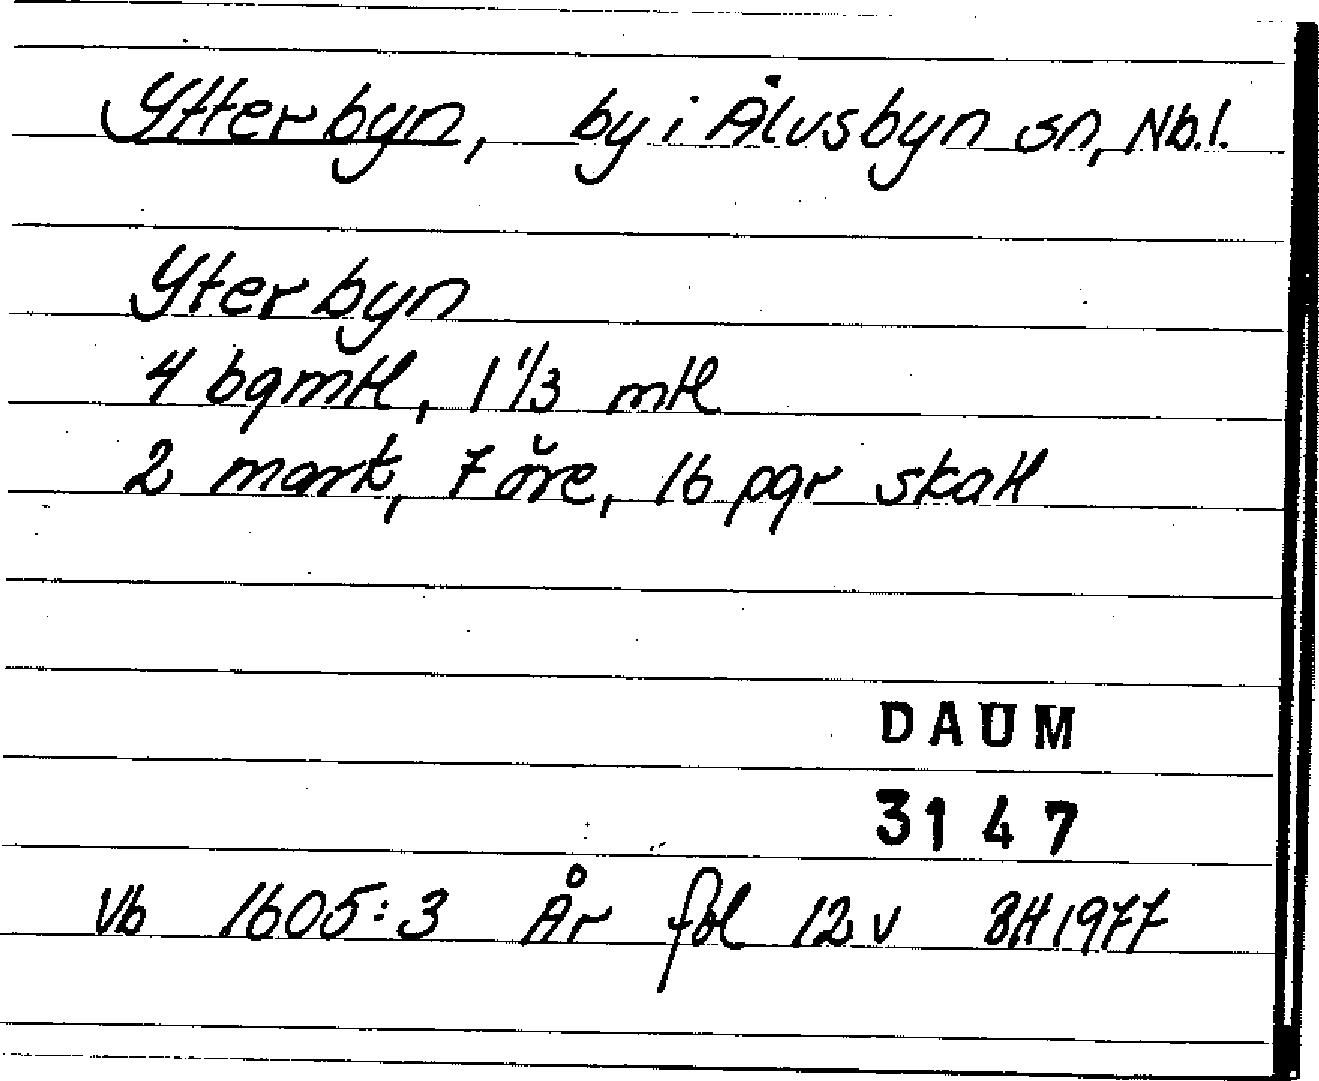 Ytterbyn, by i Älvsbyn sn, Nb.l.
Yterbyn
4 bgmtl, 1 1/3 mtl
2 mark, 7 öre, 16 pgr skatt
DAUM
3147
Vb 1605:3 År fol 12 v BH 1977